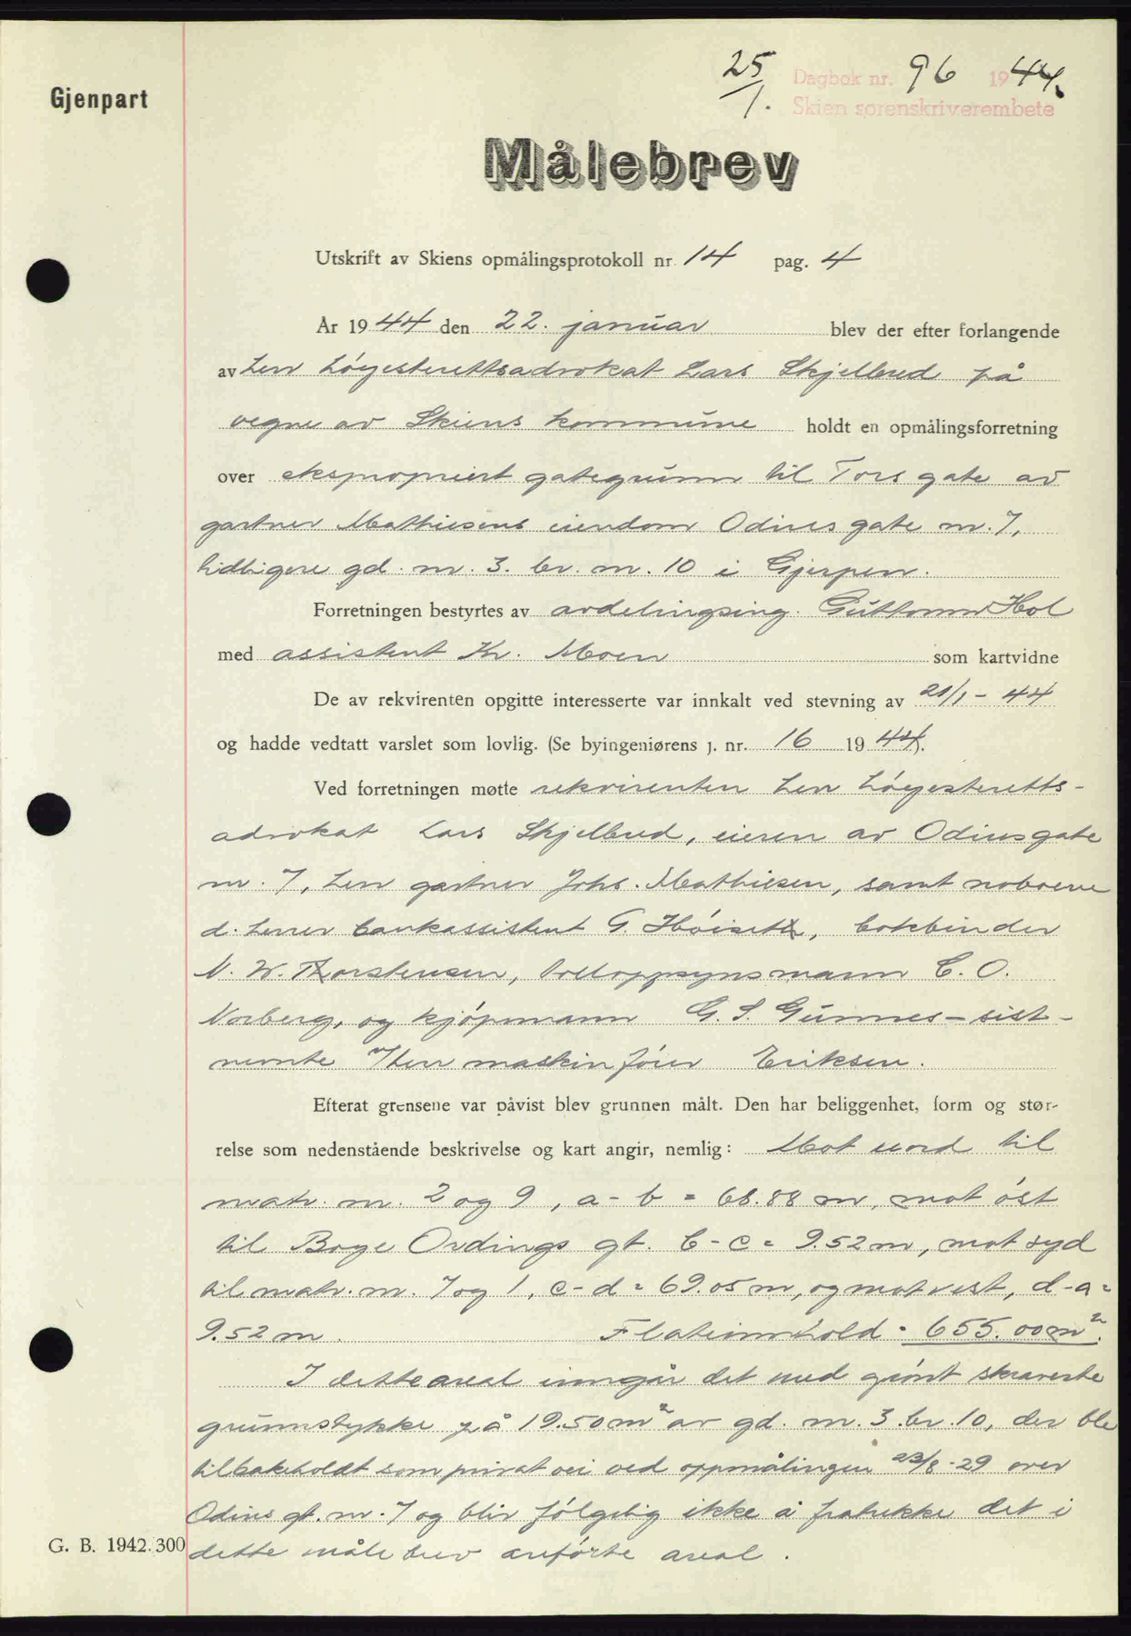 25/1. Dagbok nr. 96 1944.
Skien sorenskriverembete
Gjenpart
Målebrev
Utskrift av Skiens opmålingsprotokoll nr. 14 pag. 4
År 1944 den 22. januar blev der efter forlangende
av herr høyesterettsadvokat Lars Skjelbred på
vegne av Skiens kommune holdt en opmålingsforretning
over ekspropriert gategrunn til Tors gate av
gartner Mathiesens eiendom Odins gate nr. 7,
tidligere gd. nr. 3. br. nr. 10 i Gjerpen.
Forretningen bestyrtes av avdelingsing. Guttorm Hol
med assistent Kr. Moen som kartvidne
De av rekvirenten opgitte interesserte var innkalt ved stevning av 21/1 - 44
og hadde vedtatt varslet som lovlig. (Se byingeniørens j. nr. 16 1944.
Ved forretningen møtte rekvirenten herr høyesteretts-
advokat Lars Skjelbred, eieren av Odinsgate
nr. 7, herr gartner Johs. Mathiesen, samt naboene
d. herrer bankassistent G. Høiseth, bokbinder
N. W. Thorstensen, tolloppsynsmann C. O.
Norberg, og kjøpmann G. S. Gunnes - sist-
nevnte v/herr maskinfører Eriksen.
Efterat grensene var påvist blev grunnen målt. Den har beliggenhet, form og stør-
relse som nedenstående beskrivelse og kart angir, nemlig: Mot nord til
matr. nr. 2 og 9, a - b = 68.88 m, mot øst
til Boye Ordings gt. b - c = 9.52 m, mot syd
til matr. nr. 7 og 1, c - d = 69.05 m, og mot vest, d - a =
9.52 m. Flateinnhold = 655.00 m².
I dette areal inngår det med grønt skraverte
grunnstykke på 19.50 m² av gd. nr. 3. br. 10, der ble
tilbakeholdt som privat vei ved oppmålingen 23/8 - 29 over
Odins gt. nr. 7 og blir følgelig ikke å fratrekke det i
dette målebrev anførte areal.
G. B. 1942. 300